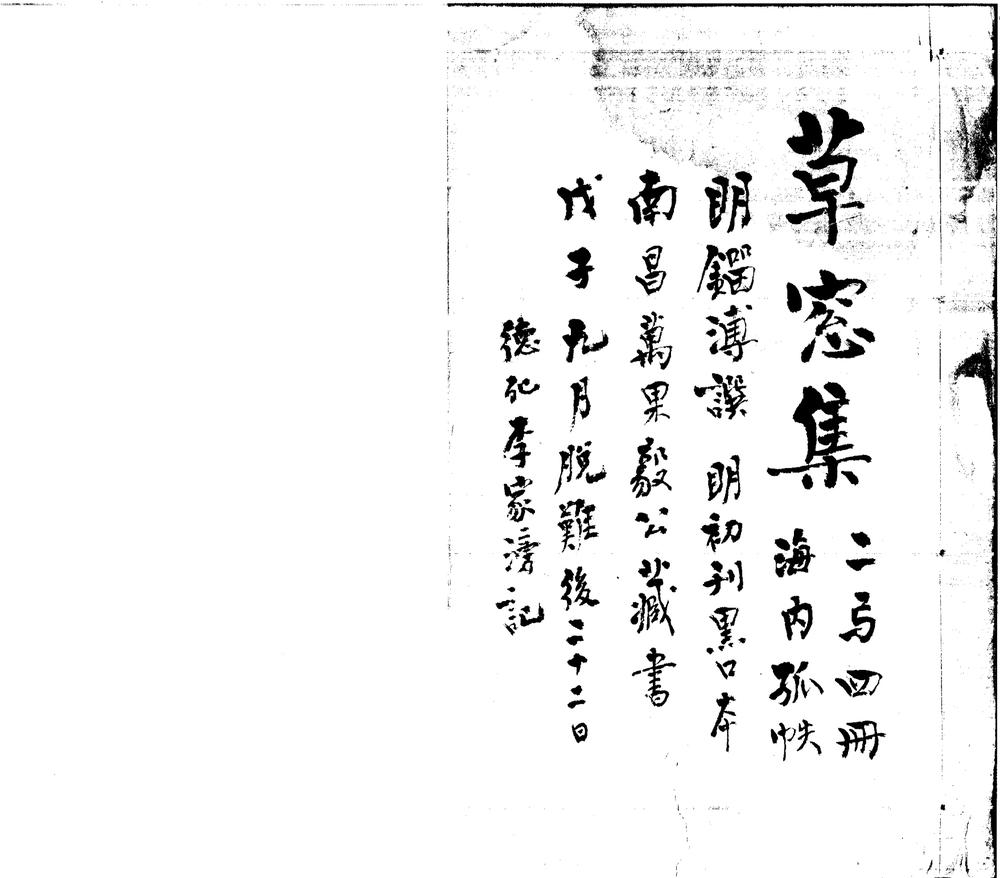 草窓集
二弓四冊
海内孤帙
明鎦溥譔 明初刊黑口夲
南昌萬果毅公藏書
戊子九月脫難後二十二日
德化李家滂記